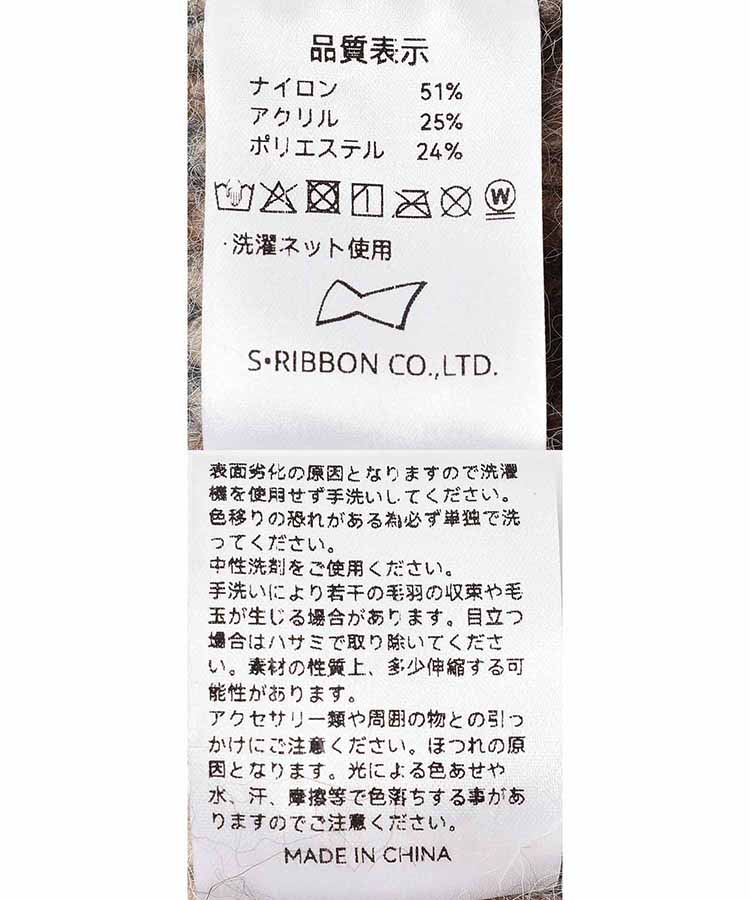 品質表示
ナイロン 51%
アクリル 25%
ポリエステル 24%
W
・洗濯ネット使用
S•RIBBON CO.,LTD.
表面劣化の原因となりますので洗濯
機を使用せず手洗いしてください。
色移りの恐れがある為必ず単独で洗
ってください。
中性洗剤をご使用ください。
手洗いにより若干の毛羽の収束や毛
玉が生じる場合があります。目立つ
場合はハサミで取り除いてくださ
い。素材の性質上、多少伸縮する可
能性があります。
アクセサリー類や周囲の物との引っ
かけにご注意ください。ほつれの原
因となります。光による色あせや
水、汗、摩擦等で色落ちする事があ
りますのでご注意ください。
MADE IN CHINA